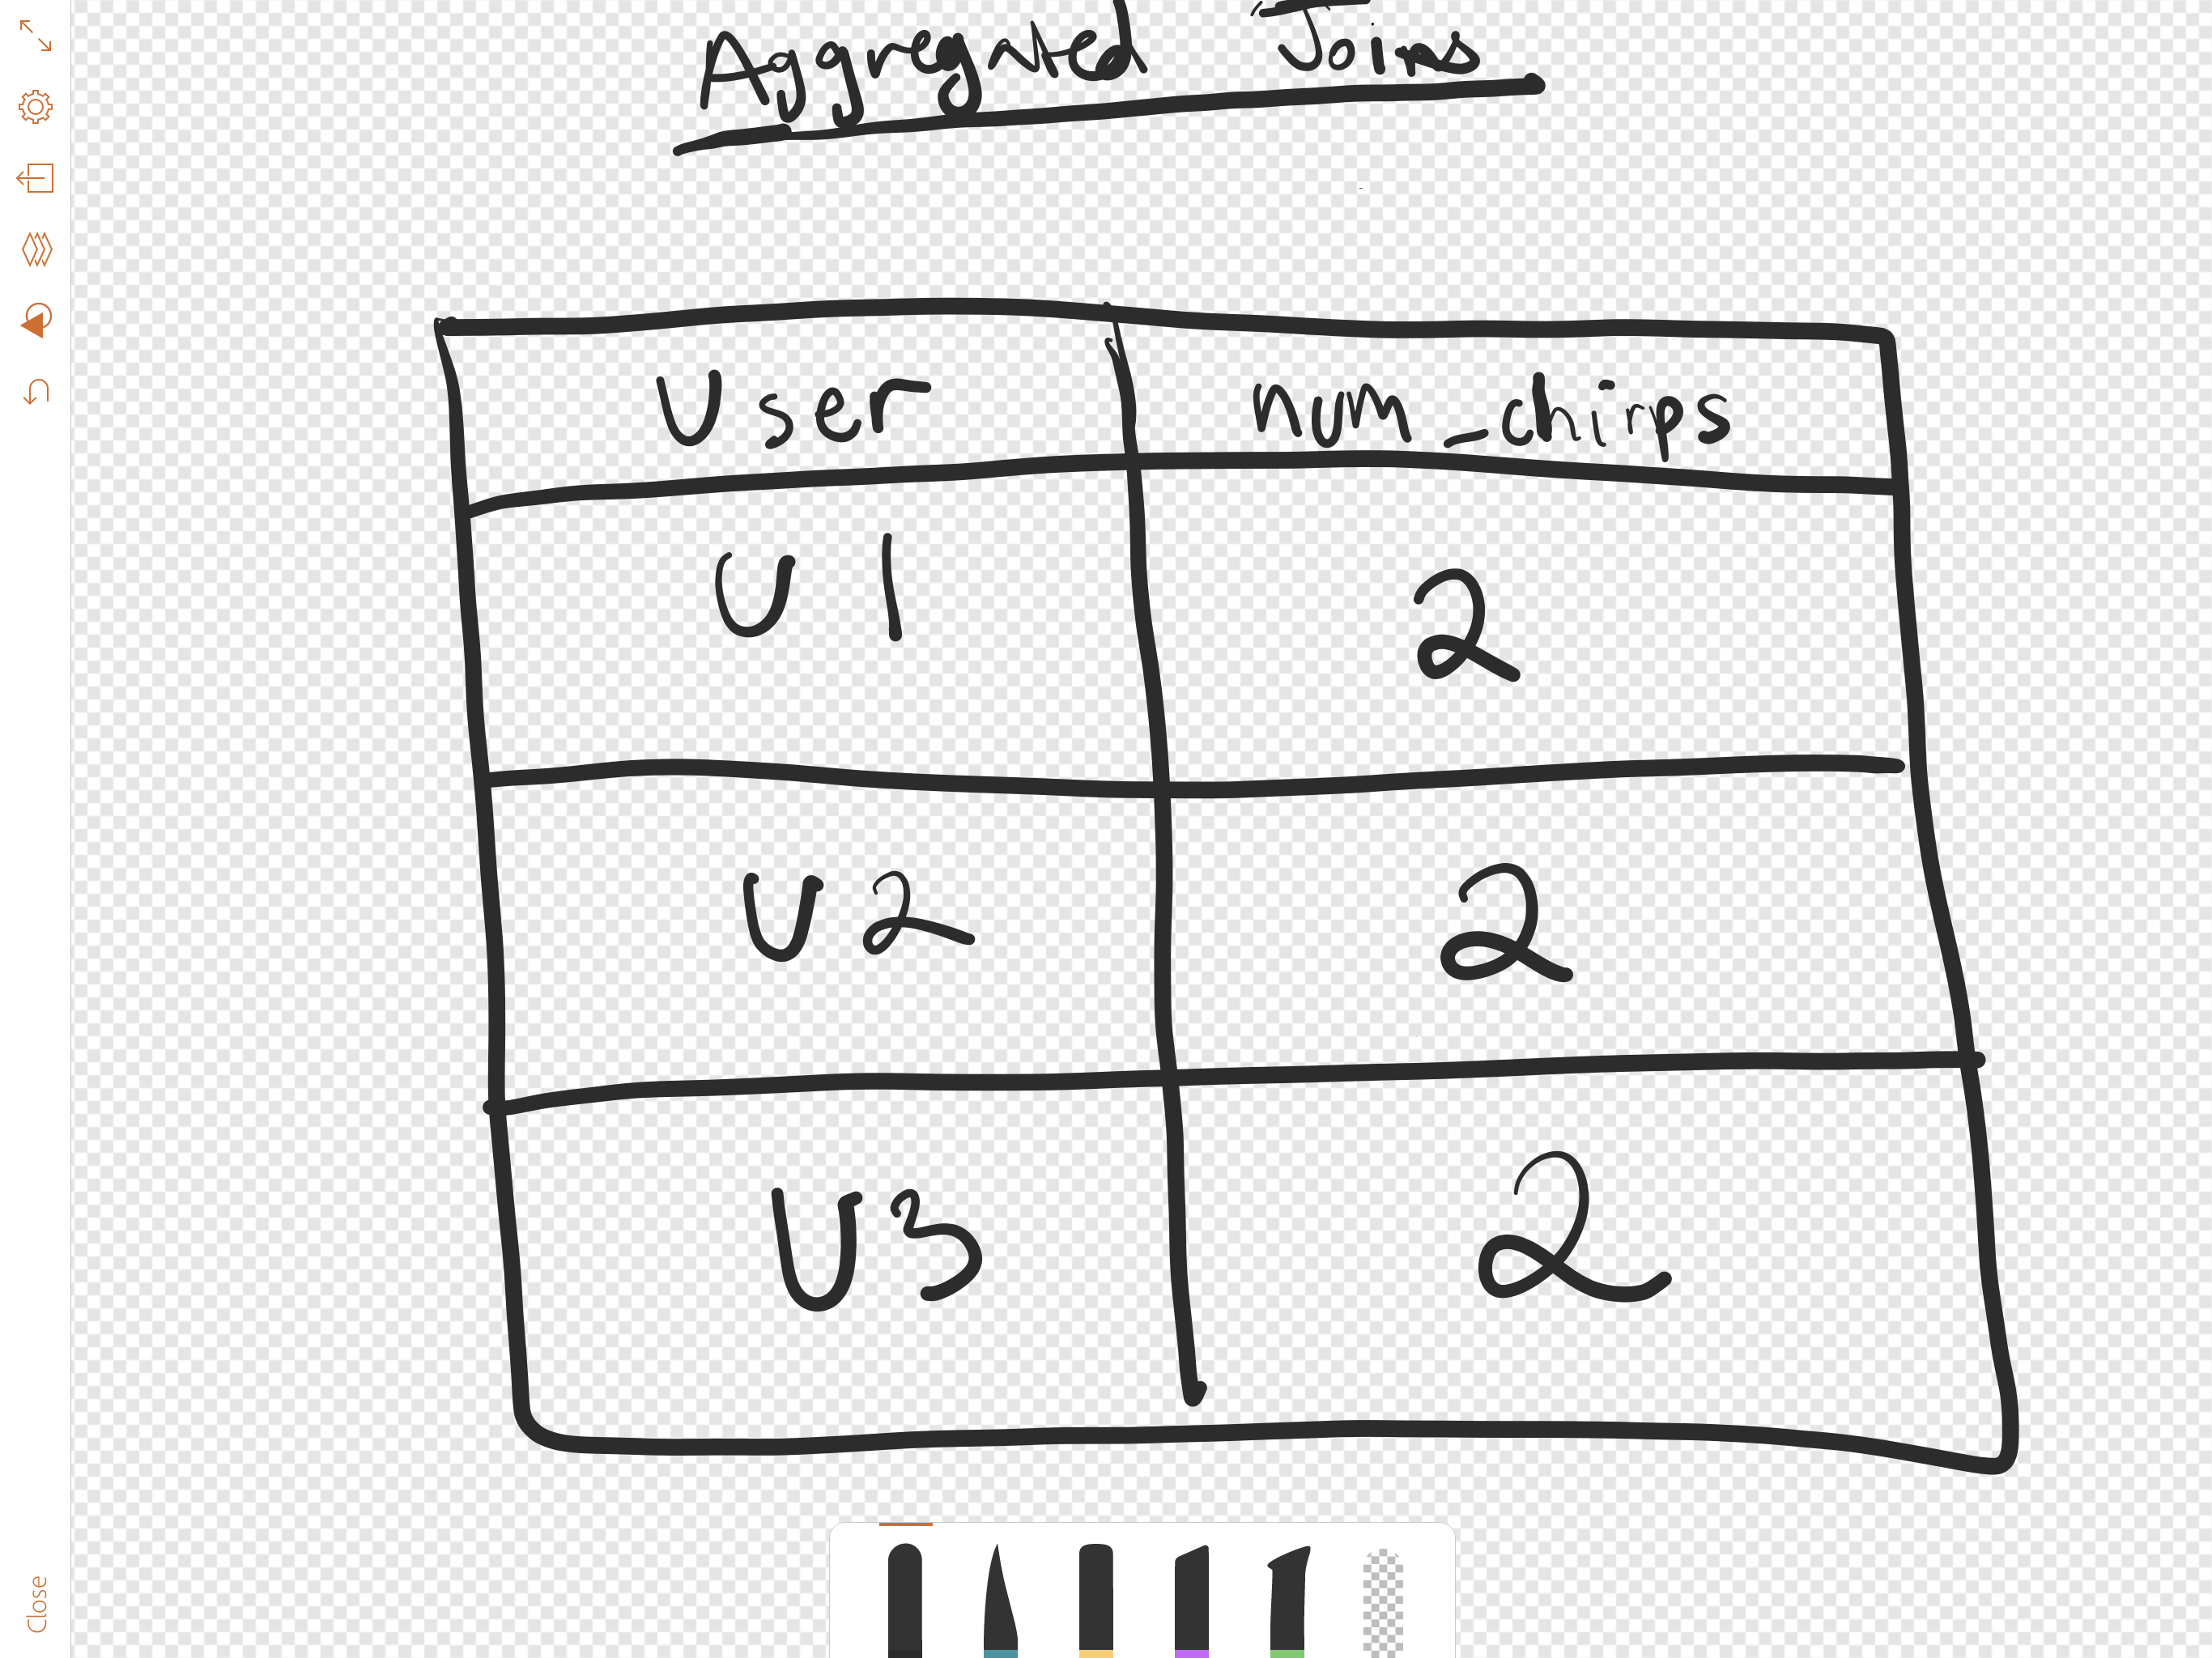 Aggregated Joins
User num_chirps
U1 2
U2 2
U3 2
Close